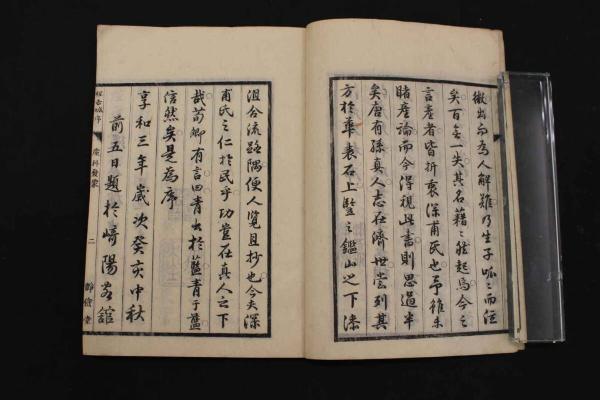 微出而為人解難乃生子呱〻而泣
矣百無一失其名藉〻然起焉今之
言產者皆折衷深甫氏也予雖未
睹產論而今得視此書則思過半
矣唐有孫真人志在濟世嘗刊其
方於華表石上監之鑑山之下漆
沮合流路隅便人覧且抄也今夫深
甫氏之仁於民乎功豈在真人之下
哉荀卿有言曰青出於藍青于藍
信然矣是為序
享和三年歲次癸亥中秋
前五日題於崎陽客舘
程赤城序
產科發蒙
二
靜儉堂